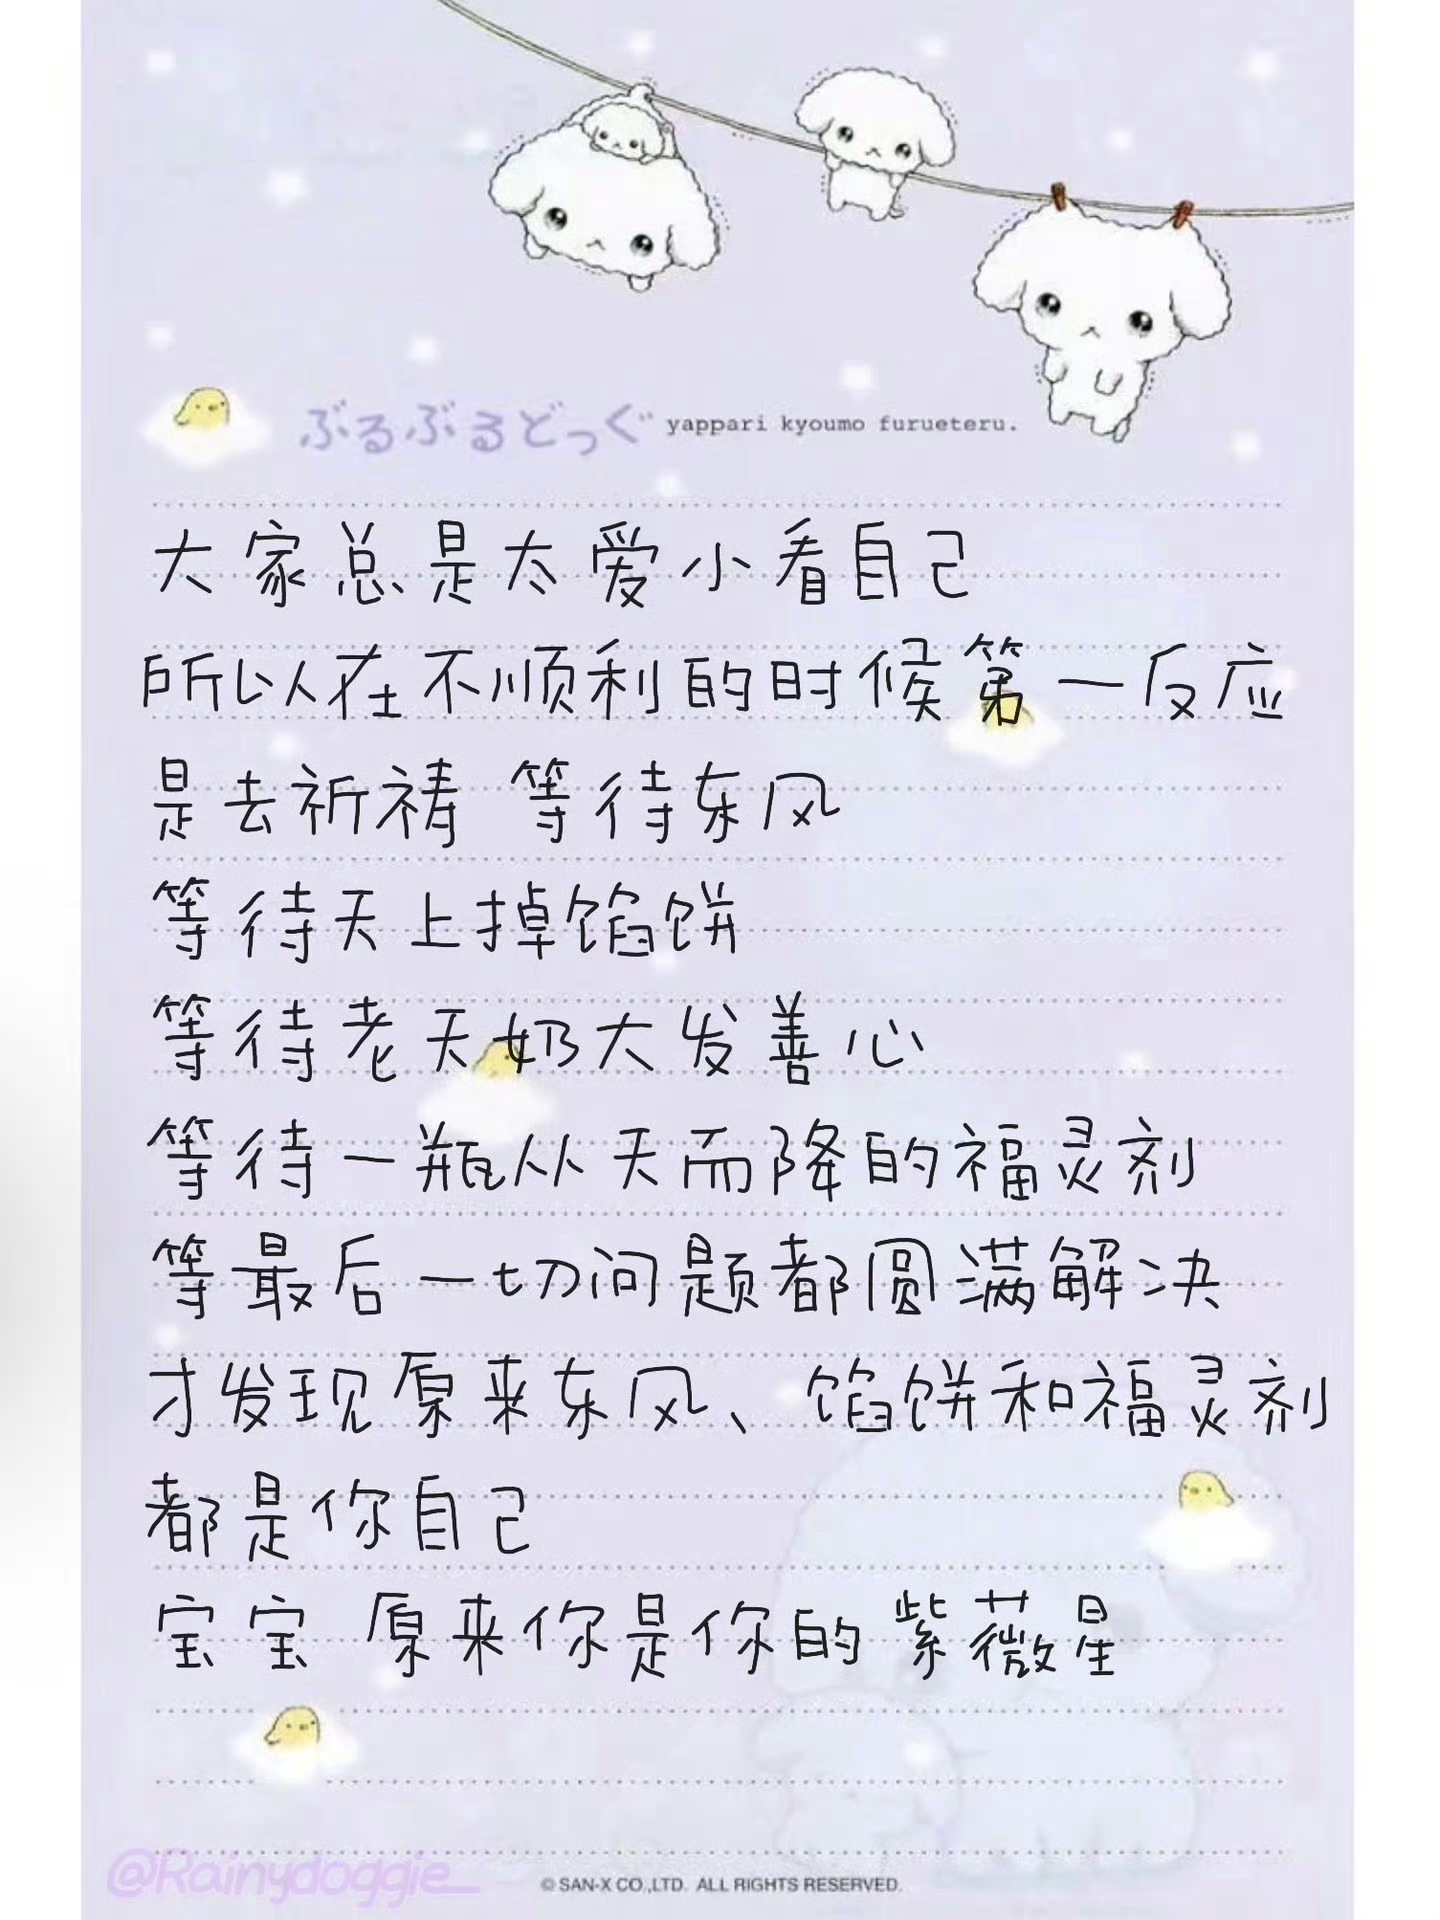 ぶるぶるどっぐ yappari kyoumo furueteru.
大家总是太爱小看自己
所以在不顺利的时候第一反应
是去祈祷 等待东风
等待天上掉馅饼
等待老天奶大发善心
等待一瓶从天而降的福灵剂
等最后一切问题都圆满解决
才发现原来东风、馅饼和福灵剂
都是你自己
宝宝 原来你是你的紫薇星
@Rainydoggie_
© SAN-X CO.,LTD. ALL RIGHTS RESERVED.